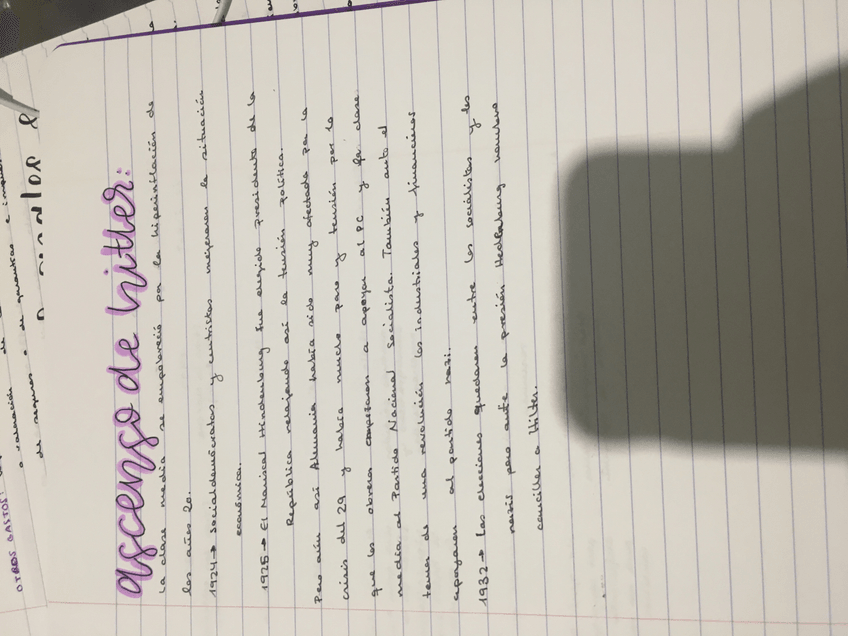 ascenso de hitler:
La clase media se empobreció por la hiperinflación de
los años 20.
1924→ Socialdemócratas y centristas mejoraron la situación
económica.
1925→ El Mariscal Hindenburg fue elegido presidente de la
República relajando así la tensión política.
Pero aún así Alemania había sido muy afectada por la
crisis del 29 y había mucho paro y tensión por lo
que los obreros empezaron a apoyar al PC y la clase
media al Partido Nacional Socialista. También ante el
temor de una revolución los industriales y financieros
apoyaron al partido nazi.
1932→ Las elecciones quedaron entre los socialistas y los
nazis pero ante la presión nombro
canciller a Hitler.
OTROS GASTOS:
o valoración de
de seguros o de